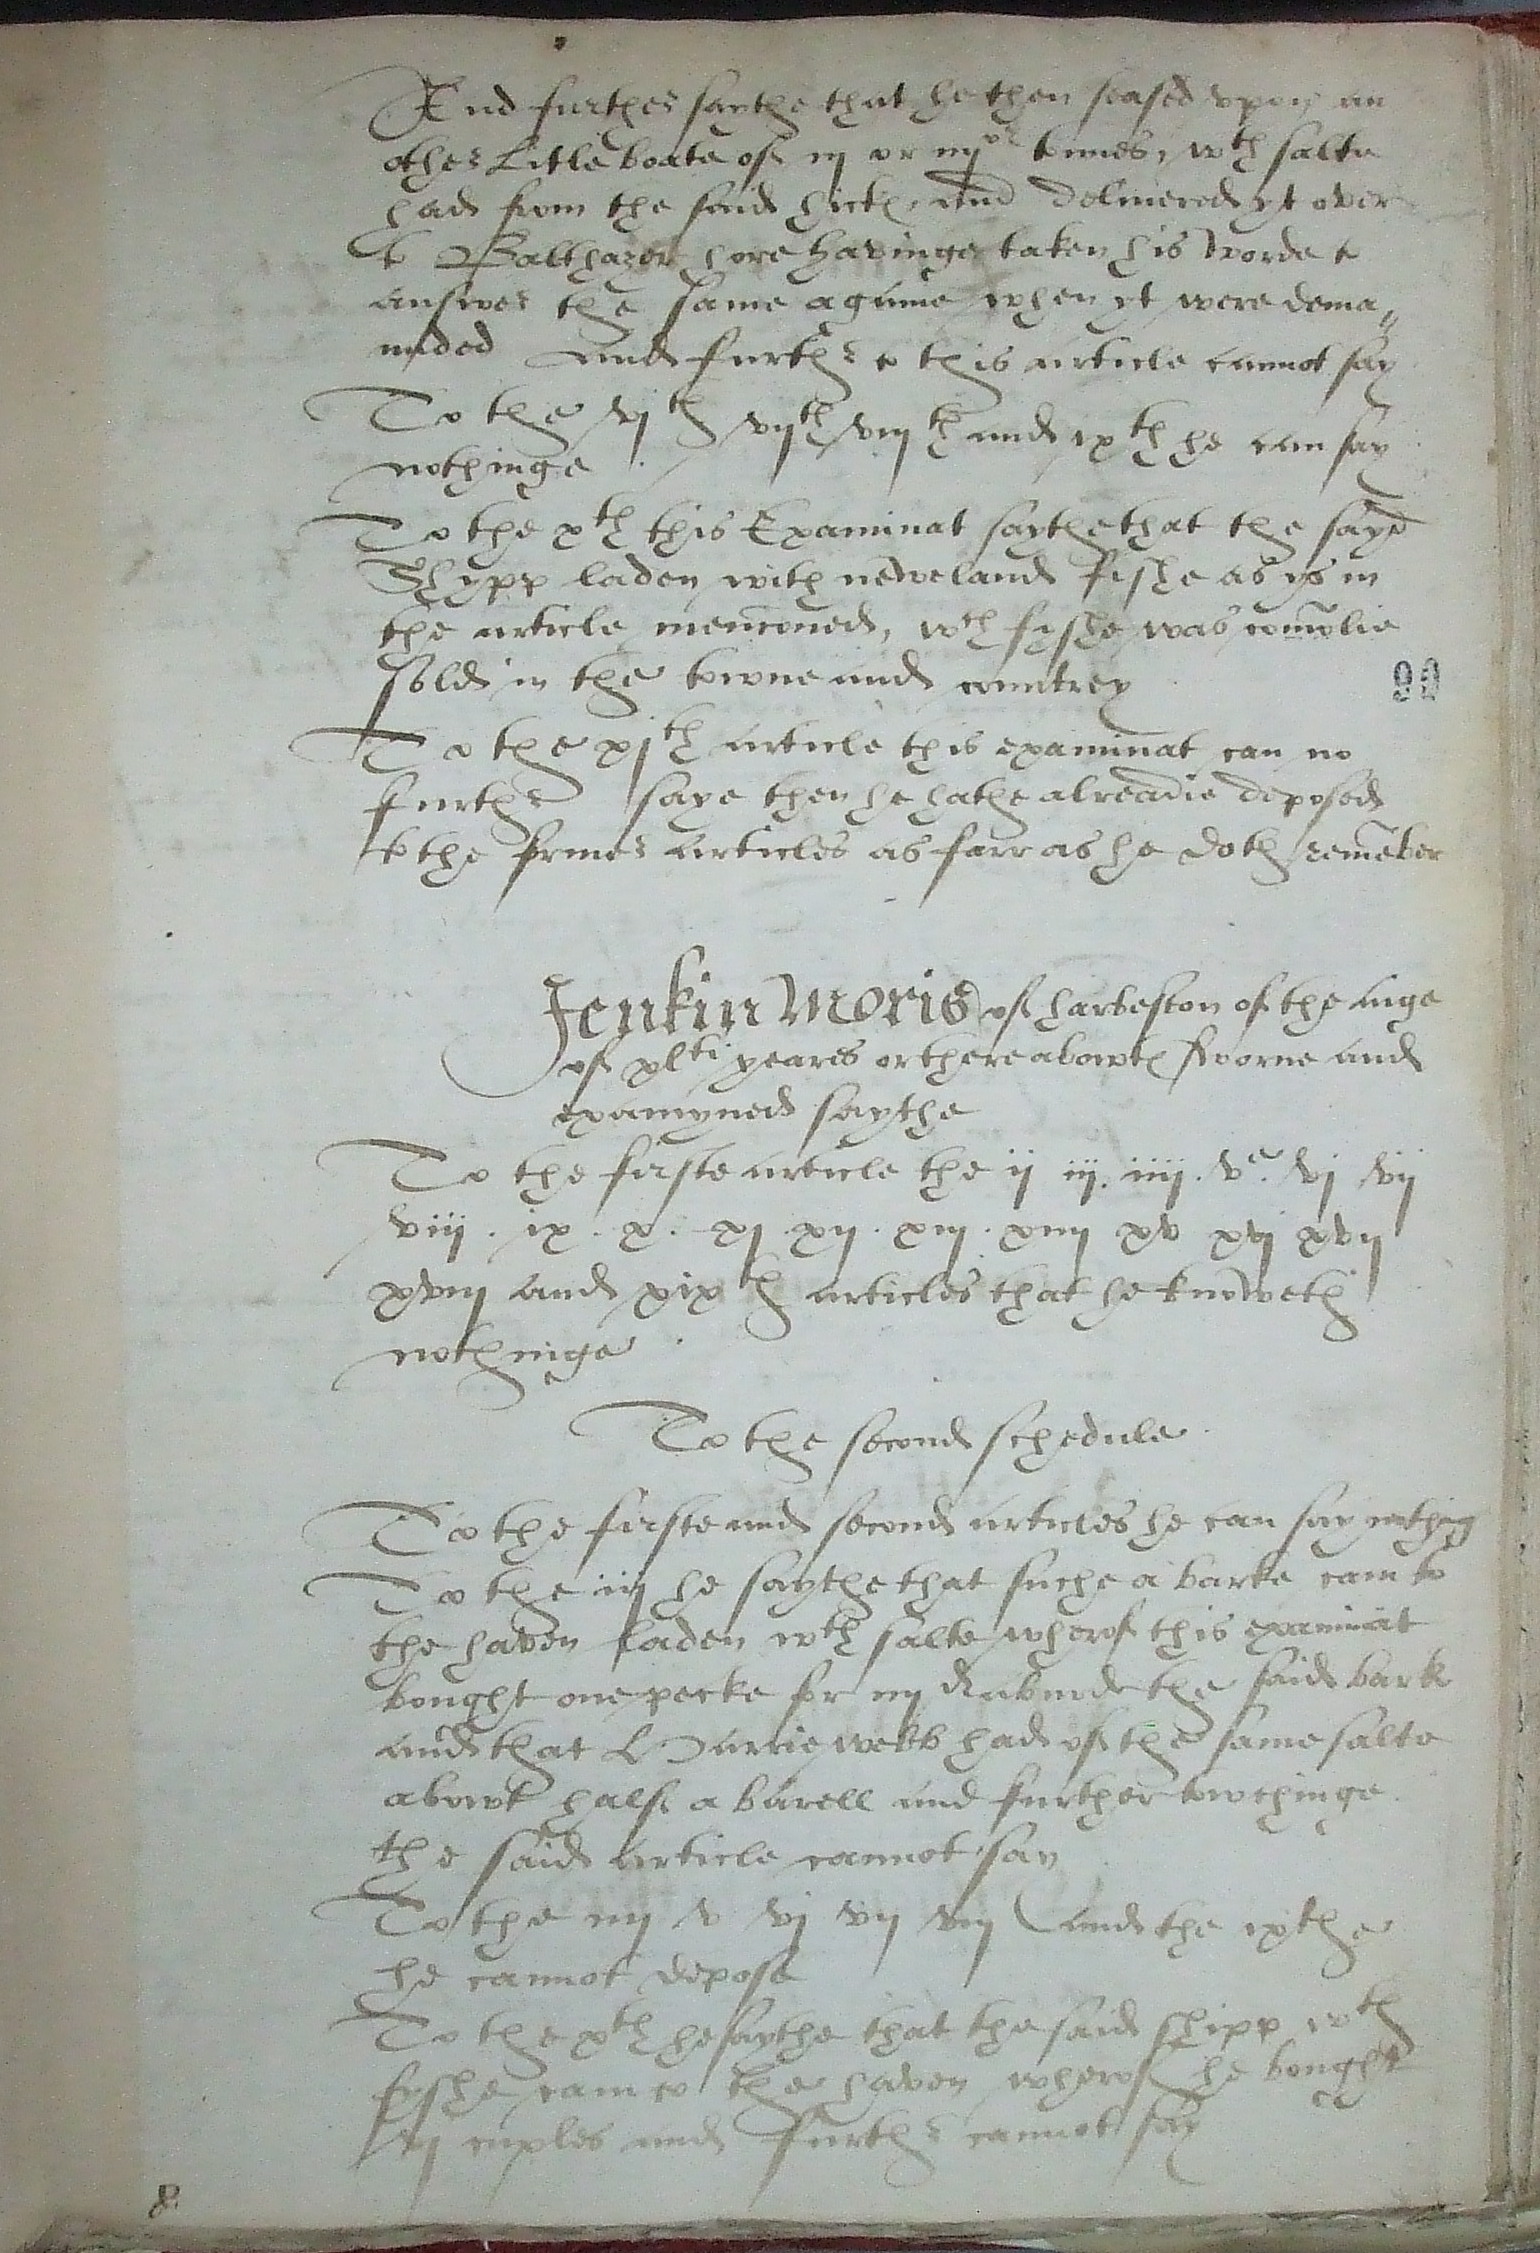 And further saythe that he then seased vpon an
other Litle boate of iij or iiij or tonnes, wth salte
had from the said hicks and deliuered yt over
to Balthazer hore havinge taken his worde to
answer the same agaiue when yt were dema„
nded And further to this article cannot say
To the vjth vijth viijth and ixth he can say
nothinge .
To the xth this Examinat saythe that the sayd
Shypp laden with neweland fishe as ys in
the article mencioned, wch fyshe was comōlie
sold in the towne and countrey
99
To the xjth article this examinat can no
further saye then he hathe alreadie deposed
to the former articles as farr as he doth remēber
Jenkin Moris of harbeston of the aige
of xlti yeares or there abowts sworne and
examyned saythe
To the firste article the ij iij. iiij. ve. vj vij
viij . ix . x . xj . xij . xiij . xiiij xv xvj xvij
xviij and xixth articles that he knoweth
nothinge .
To the second schedule .
To the firste and second articles he can say nothing
To the iij he saythe that suche a barke cam to
the haven laden wth salte wherof this examinat
bought one pecke for iiij d abord the said bark
and that Harrie webb had of the same salte
abowt half a barell and further towchinge
the said article cannot say
To the iiij v vj vij viij and the ixthe
he cannot depose
To the xth he saythe that the said shipp wth
fyshe cam to the haven wherof he bought
vj cuples and further cannot say